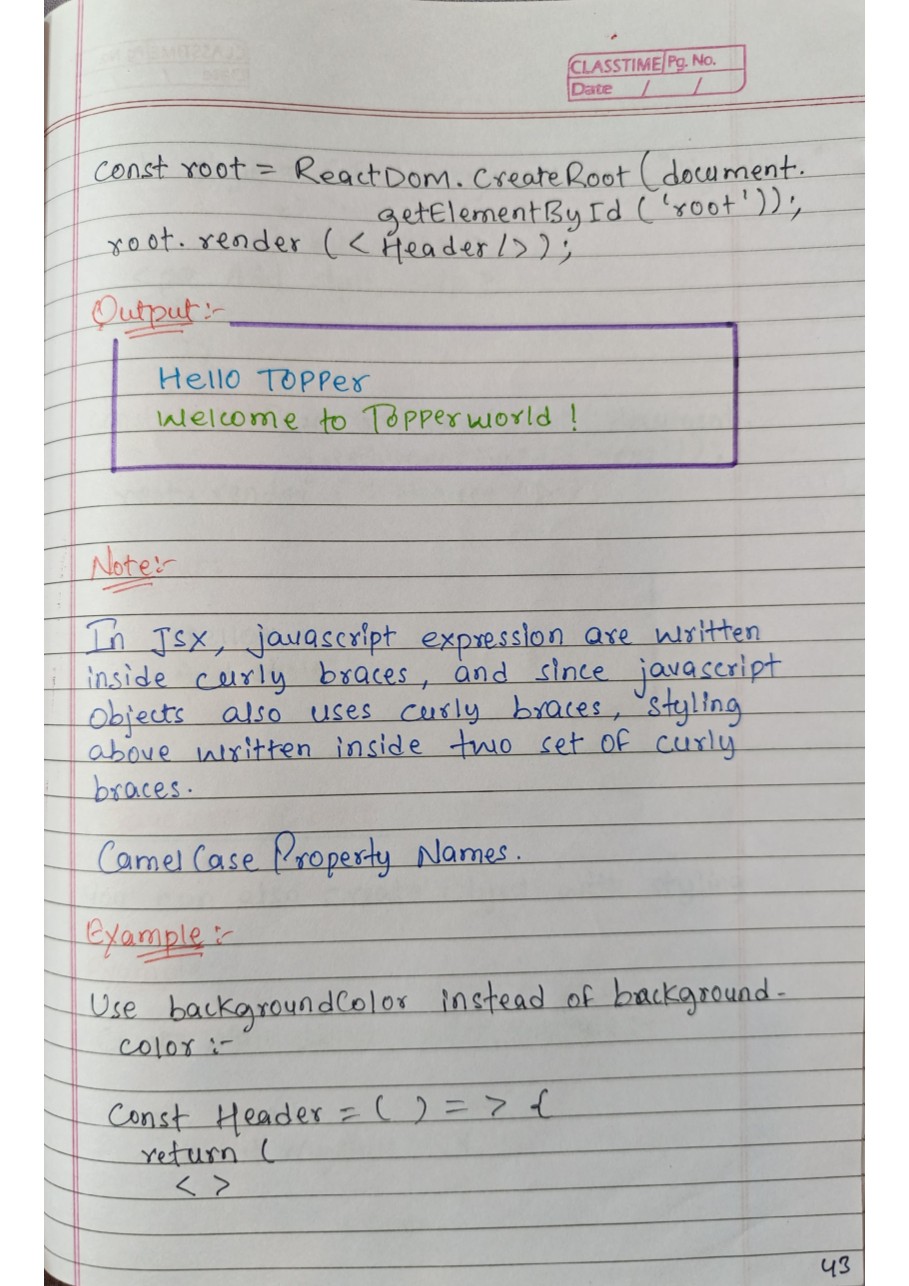 CLASSTIME Pg. No.
Date / /
Const root = ReactDom. CreateRoot (document.
getElementById ('root'));
root. render (< Header />);
Output :-
Hello TOPPer
Welcome to Topperworld !
Note:-
In JSX, javascript expression are written
inside curly braces, and since javascript
objects also uses curly braces, styling
above written inside two set of curly
braces.
Camel Case Property Names.
Example :-
Use backgroundColor instead of background-
color :-
Const Header = ( ) = > {
return (
< >
43